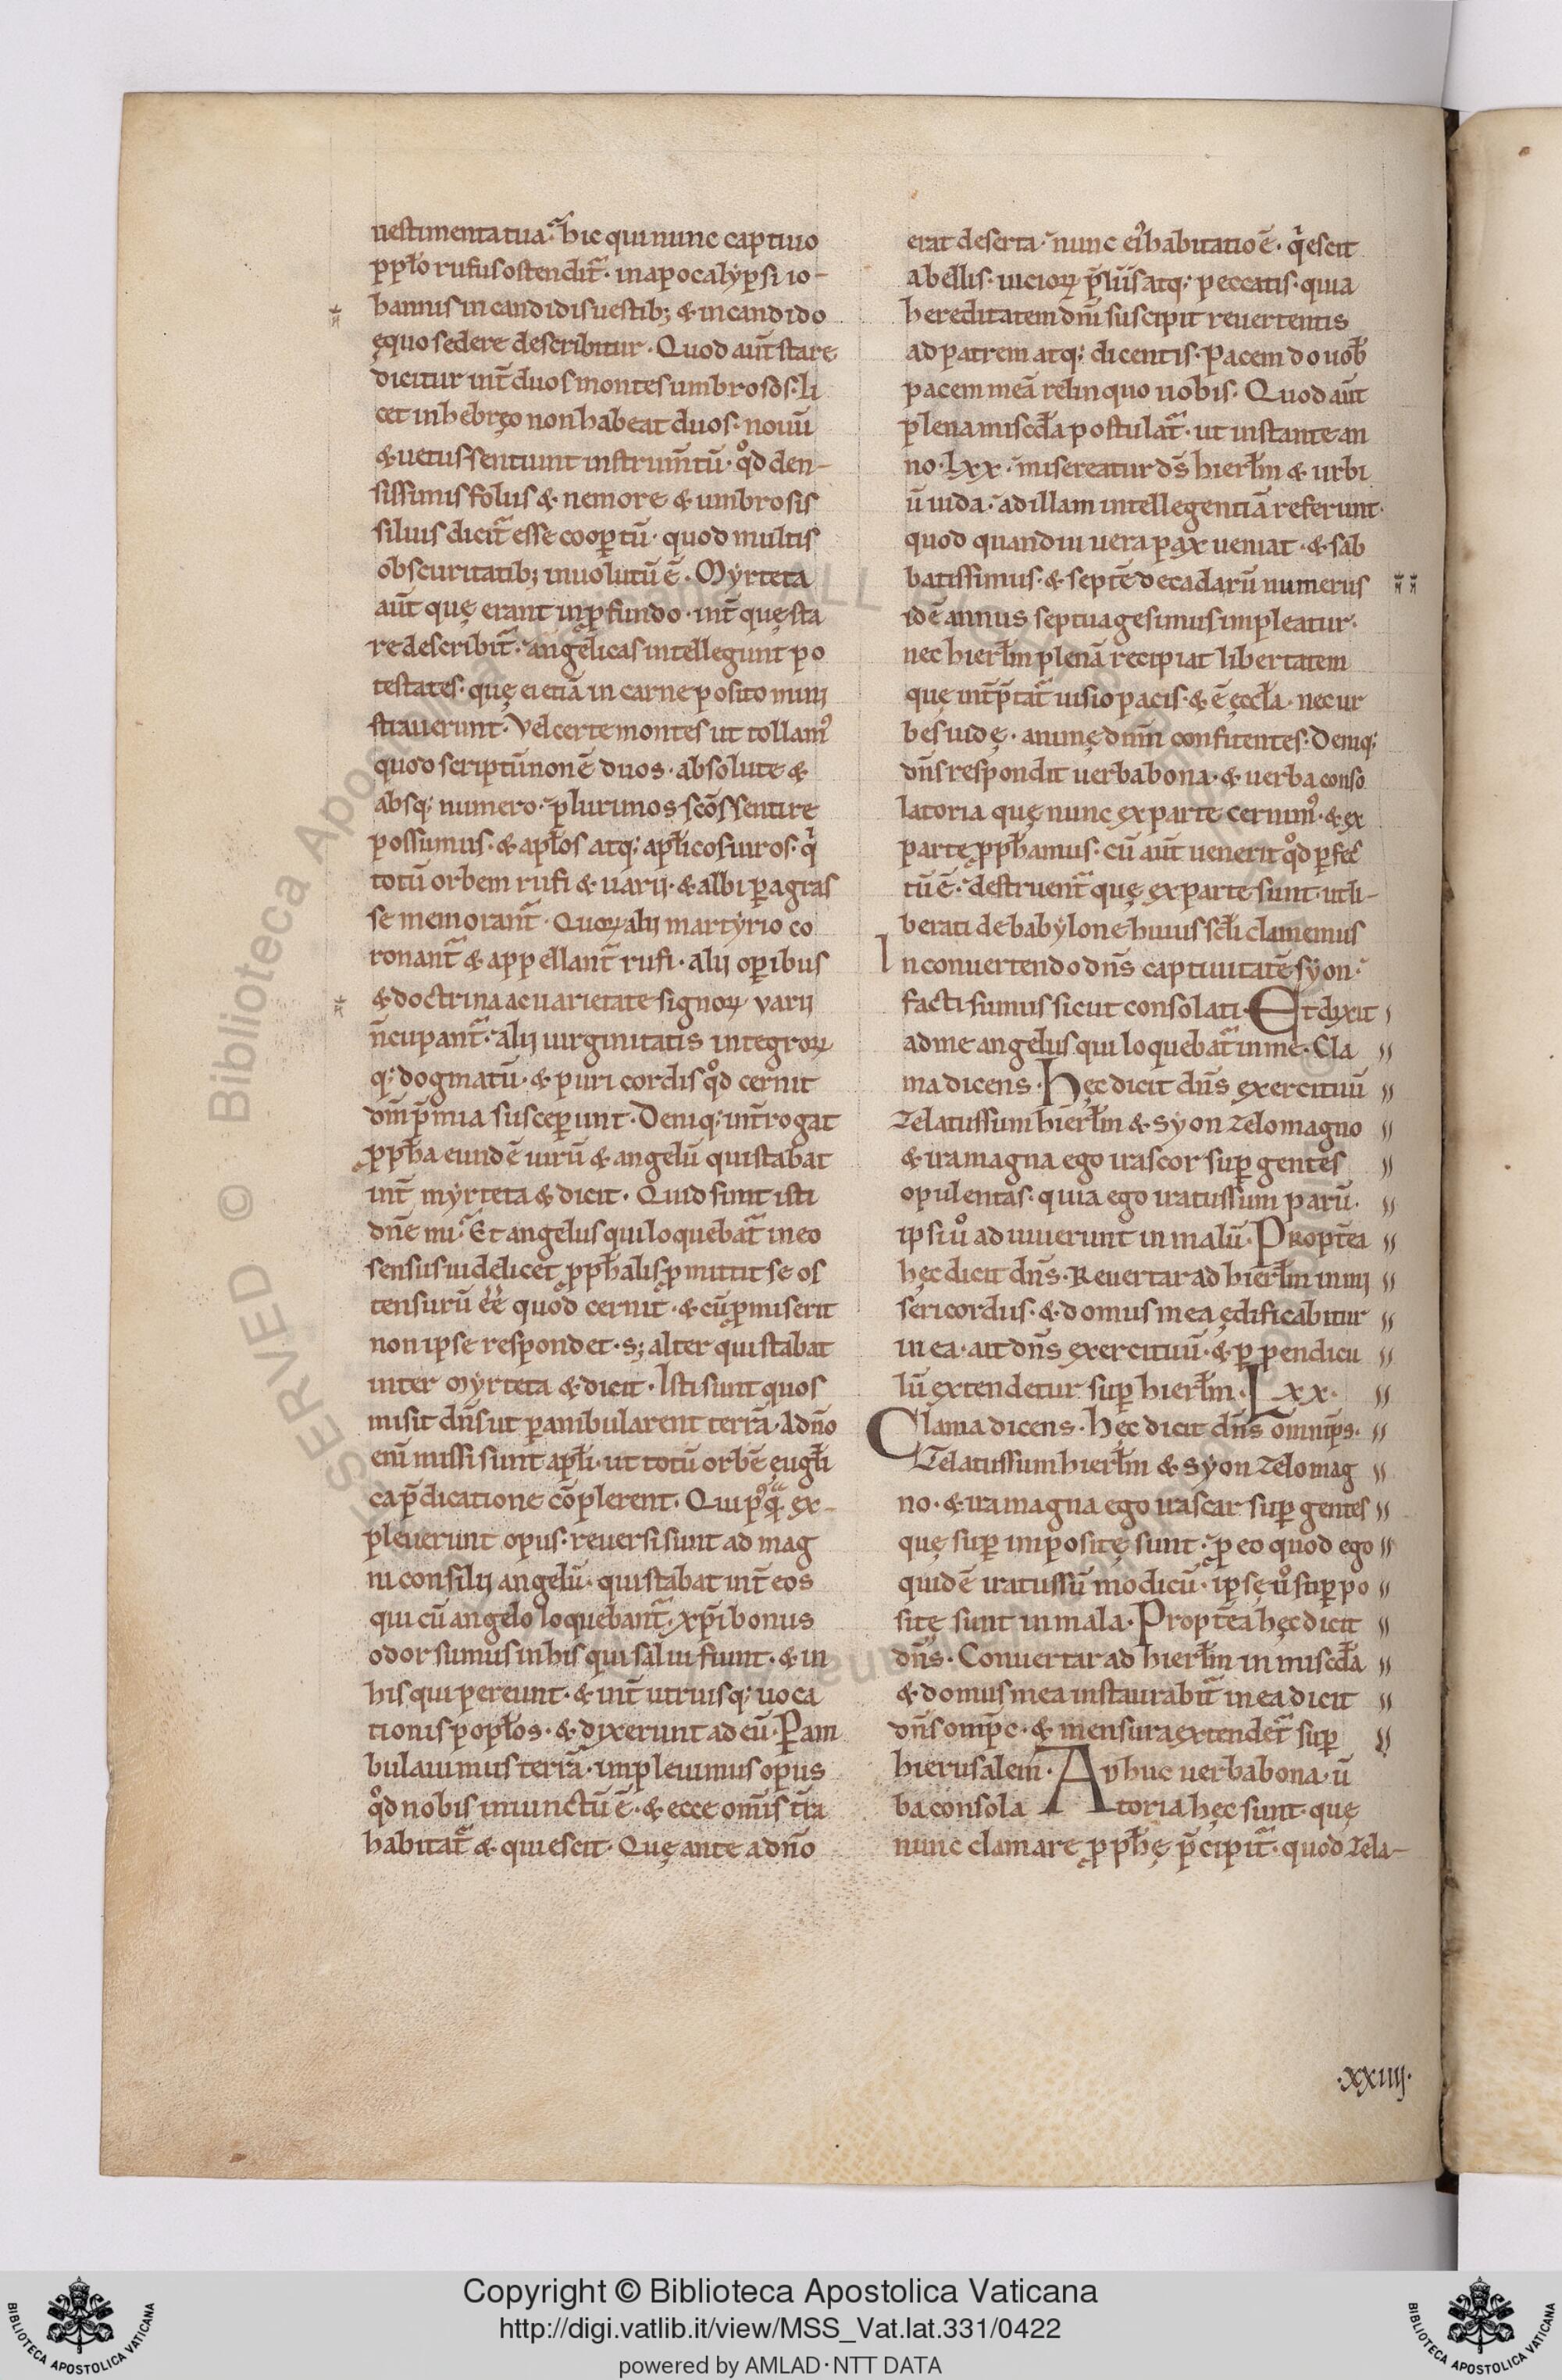 uestimenta tua? hic qui nunc captiuo
pplo rufus ostendit̃· in apocalypsi io-
hannis in candidis uestib; & in candido
ęquo sedere describitur· Quod aut̄ stare
dicitur int̄ duos montes umbrosos· li
cet in hebręo non habeat duos· nouū
& uetus sentiunt instrum̄tū· qd̊ den-
sissimis foliis & nemore & umbrosis
siluis dicit̃ esse cooꝑtū· quod multis
obscuritatib; inuolutū ē· Myrteta
aut̄ quę erant in ꝓfundo· int̄ quę sta
re describit̃· angelicas intellegunt po
testates· quę ei etiā in carne posito mini
strauerunt· Vel certe montes ut tollam᾽
quod scriptū non ē duos· absolute &
absq; numero· plurimos scōs sentire
possumus· & apłos atq; apłicos uiros· qͥ
totū orbem rufi & uarii· & albi ꝑagras
se memorant̃· Quoꝝ alij martyrio co
ronant̃ & appellant̃ rufi· alij oꝑibus
& doctrina ac uarietate signoꝝ varij
n̄cupant̃· alij uirginitatis integroꝝ
q; dogmatū· & puri cordis qd̊ cernit
dm̄ p̄mia susceꝑunt· Deniq; int̄rogat
ꝓpħa eundē uirū & angelū qui stabat
int̄ myrteta & dicit· Quid sunt isti
dn̄e mi? Et angelus qui loquebat̃ in eo
sensus uidelicet ꝓpħalis ꝓmittit se os
tensurū eē quod cernit· & cū ꝓmiserit
non ipse respondet· s; alter qui stabat
inter Myrteta & dicit· Isti sunt quos
misit dn̄s ut ꝑambularent terrā· A dn̄o
eni missi sunt apłi· ut totū orbē eugłi
ca p̄dicatione cōplerent· Qui pꝰqͣ ex-
pleuerunt opus· reuersi sunt ad mag
ni consilij angelū· qui stabat int̄ eos
qui cū angelo loquebant̃· xp̄i bonus
odor sumus in his qui salui fiunt· & in
his qui pereunt· & int̄ utriusq; uoca
tionis popłos· & dixerunt ad eū· Ꝑam
bulauimus terrā· impleuimus opus
qd̊ nobis iniunctū ē· & ecce om̄is t̄ra
habitat̃ & quiescit· Quę ante a dn̄o
erat deserta· nunc ei᾽ habitatio ē· qͥescit
a bellis· uicioꝝ p̄liis atq; peccatis· quia
hereditatem dn̄i suscipit reuertentis
ad patrem atq; dicentis· Pacem do uob̄
pacem meā relinquo uobis· Quod aut̄
plena miscdła postulat̃· ut instante an
no· lxx· misereatur ds̄ hierłm & urbi
ū iuda· ad illam intellegentiā referunt·
quod quandiu uera pax ueniat· & sab
batissimus· & septē decadarū numerus
idē annus septuagesimus impleatur·
nec hierłm plenā recipiat libertatem
quę int̄p̄tat̃ uisio pacis· & ē ęccła· nec ur
bes iudę· animę dnm̄ confitentes· Deniq;
dn̄s respondit uerba bona· & uerba conso
latoria quę nunc ex parte cernim᾽· & ex
parte ꝓpħamus· cū aut̄ uenerit qd̊ ꝑfec
tū ē· destruent̃ quę ex parte sunt· ut li-
berati de babylone huius scłi clamemus
In conuertendo dn̄s captiuitatē syon·
facti sumus sicut consolati· Et dixit
ad me angelus qui loquebat̃ in me· Cla
ma dicens· Hęc dicit dn̄s exercituū
Zelatus sum hierłm & syon zelo magno
& ira magna ego irascor suꝑ gentes
opulentas· quia ego iratus sum parū·
ipsi ů adiuuerunt in malū· Propt̄ea
hęc dicit dn̄s· Reuertar ad hierłm in mi
sericordiis· & domus mea ędificabitur
in ea· ait dn̄s exercituū· & ꝑpendicu
lū extendetur suꝑ hierłm· Lxx·
Clama dicens· hęc dicit dn̄s omnip̄s·
Zelatus sum hierłm & syon zelo mag
no· & ira magna ego irascar suꝑ gentes
quę suꝑ impositę sunt· ꝓ eo quod ego
quidē iratus sū modicū· ipsę ů suꝑpo
sitę sunt in mala· Propt̄ea hęc dicit
dn̄s· Conuertar ad hierłm in miscdła
& domus mea instaurabit̃ in ea dicit
dn̄s omp̄c· & mensura extendet̃ suꝑ
hierusalem· Adhuc uerba bona· ū
ba consolatoria hęc sunt· quę
nunc clamare ꝓpħę p̄cipit̃· quod zela-
·xxiiij·
Copyright © Biblioteca Apostolica Vaticana
http://digi.vatlib.it/view/MSS_Vat.lat.331/0422
powered by AMLAD·NTT DATA
BIBLIOTECA APOSTOLICA VATICANA
BIBLIOTECA APOSTOLICA VATICANA